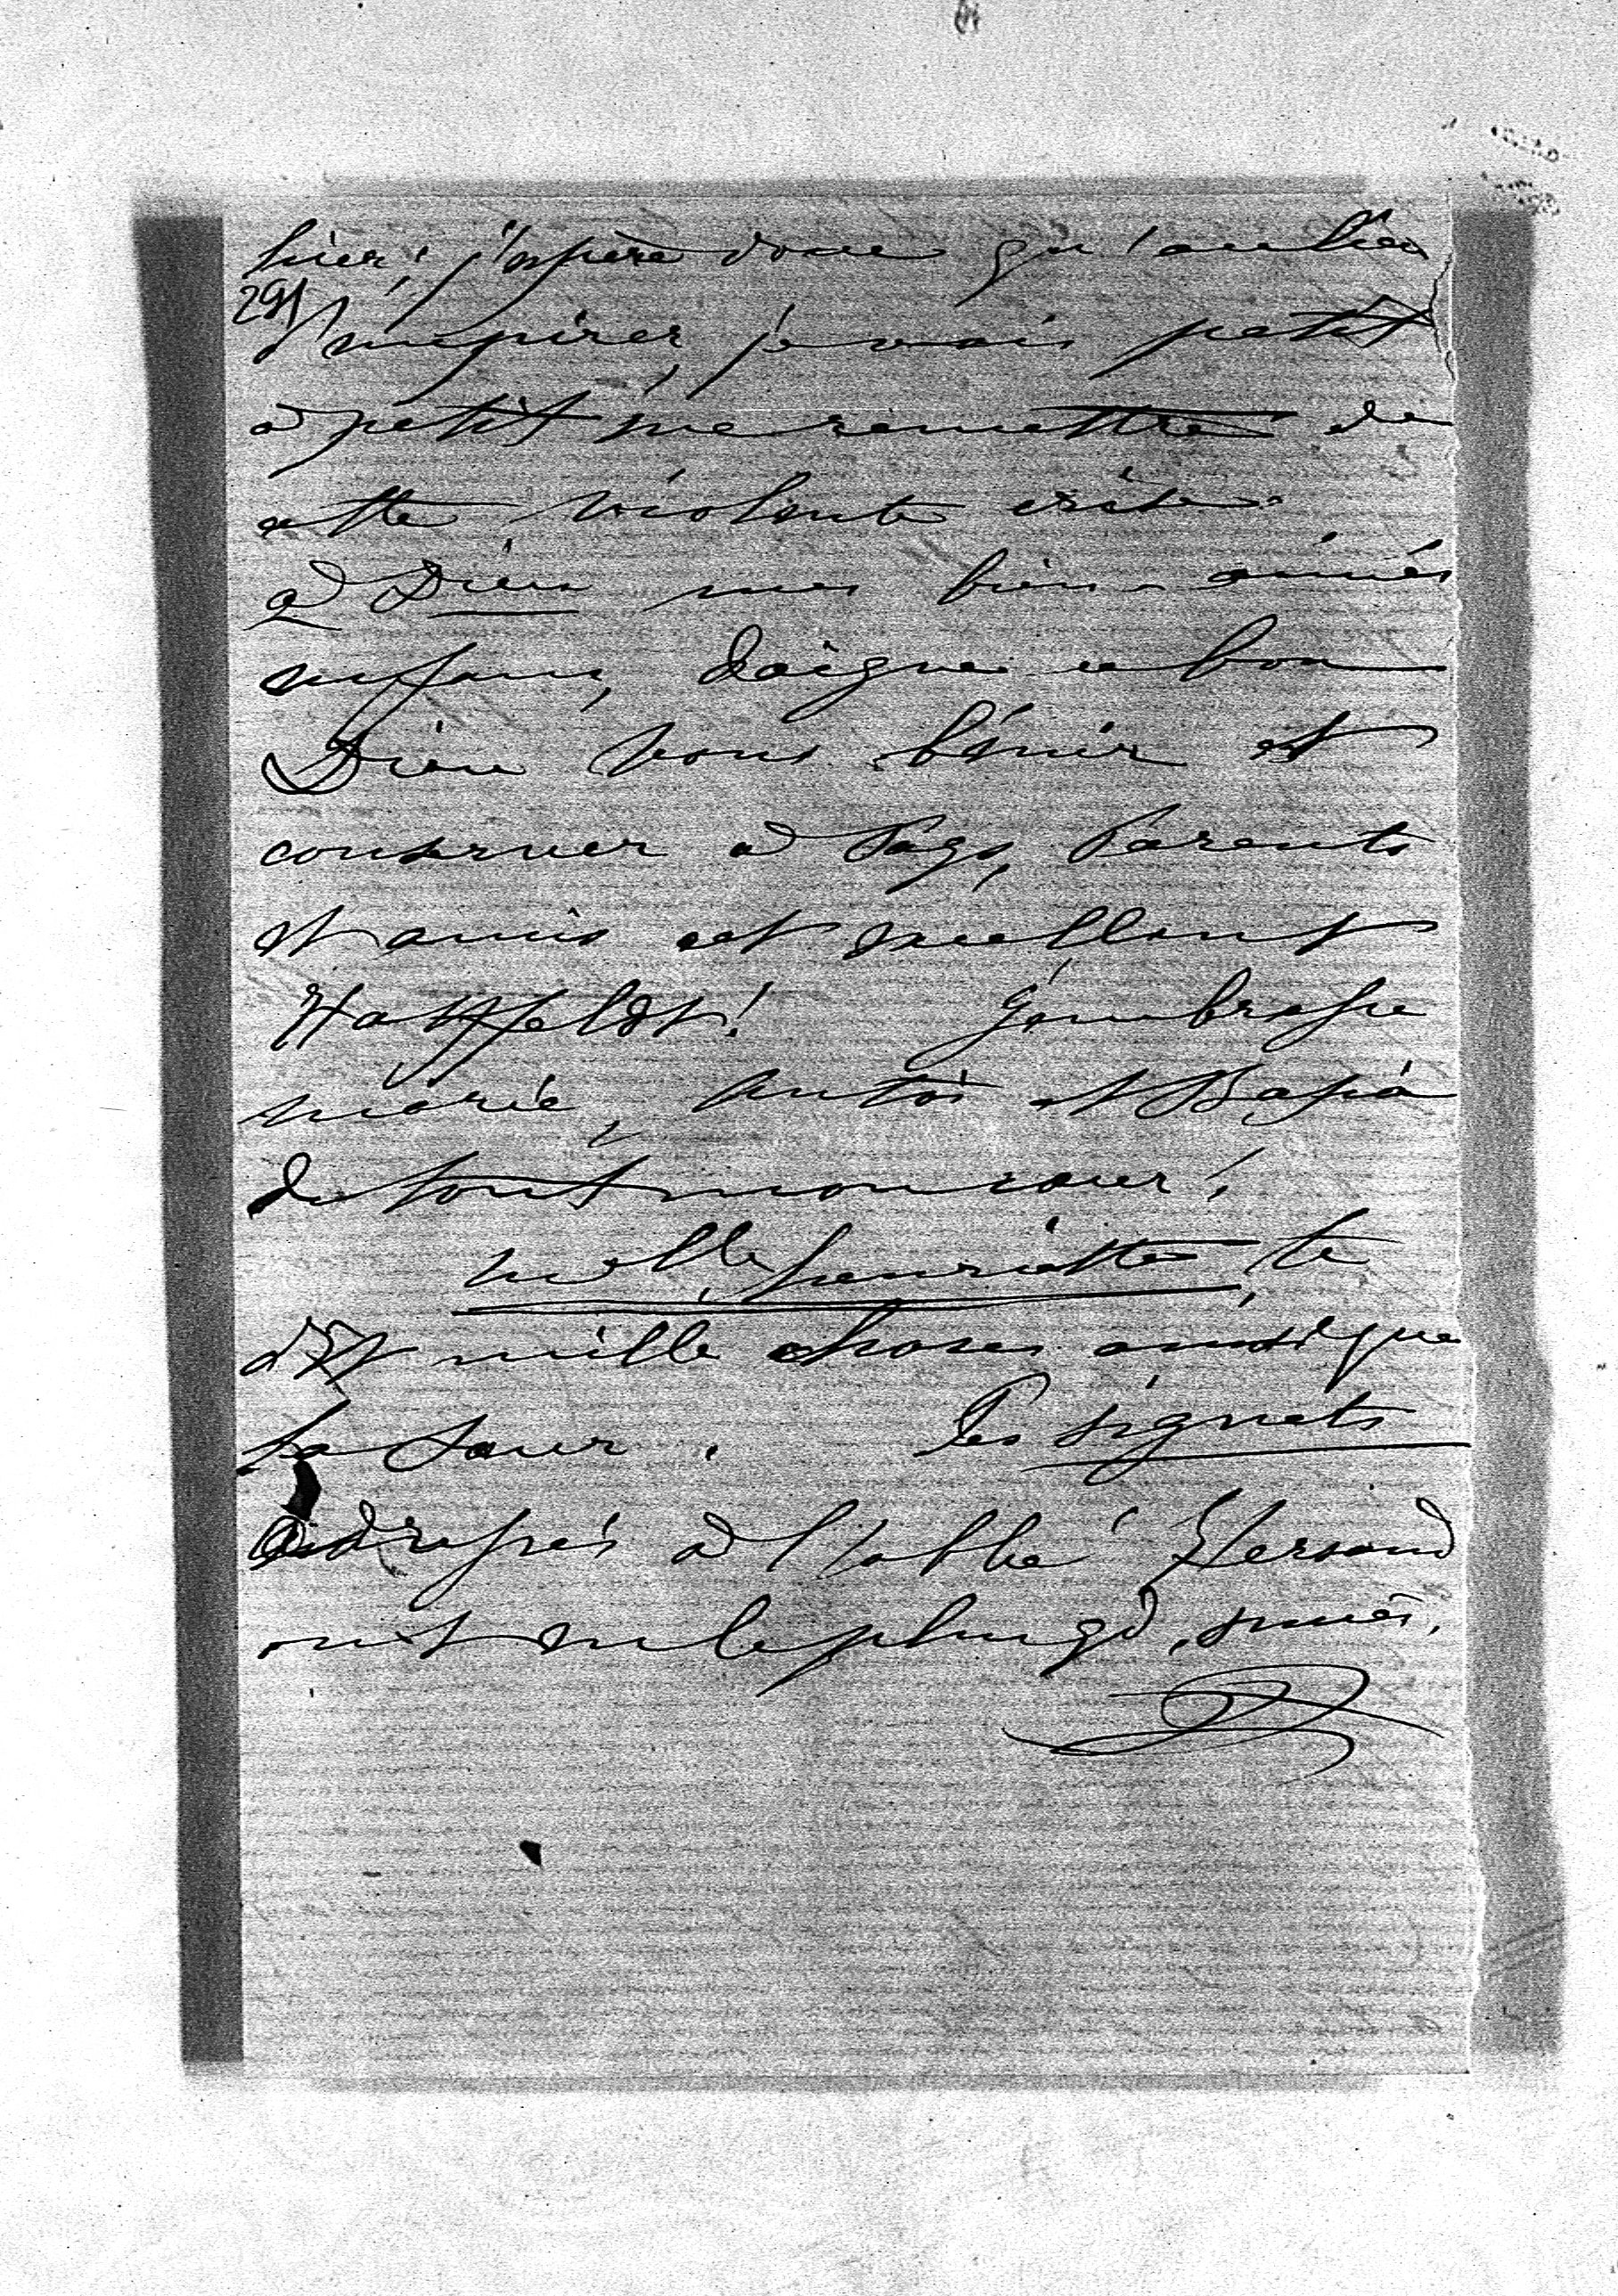 hier; j'espère donc qu'au lieu
291
d'empirer, je vais petit
à petit me remettre de
cette violente crise.
à Dieu mes bien-aimés
enfans, daigne ce bon
Dieu vous bénir et
conserver à Sago, Parents
et amis cet excellent
Hatzfeldt! J'embrasse
Marie, Antoi et Bapia
de tout mon cœur!
Melle henriette, te
dit mille choses ainsi que
sa sœur. Les signets
adressés à l'abbé
ont eu le plus gd. succès.